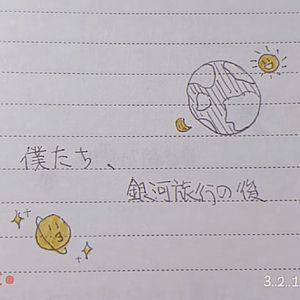 僕たち、
銀河旅行の後
3.2.1